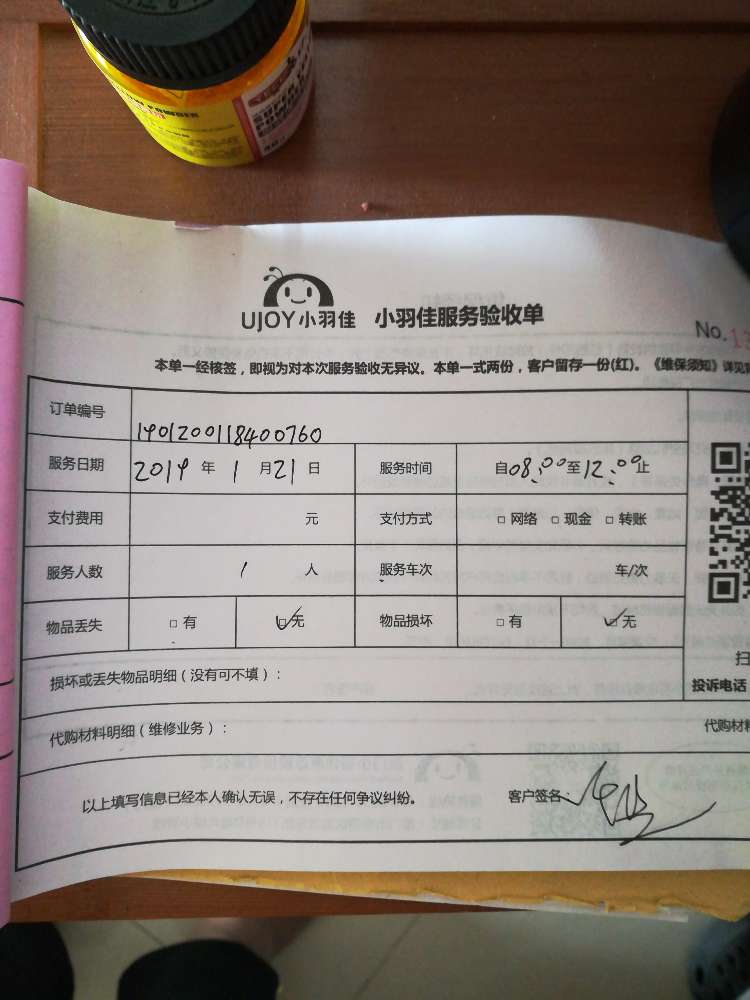 UJOY小羽佳 小羽佳服务验收单
No. 13
本单一经核签，即视为对本次服务验收无异议。本单一式两份，客户留存一份(红)。《维保须知》详见
订单编号 1901200118400760
服务日期 2019 年 1 月 21 日 服务时间 自08:00至12:00止
支付费用 元 支付方式 □ 网络 □ 现金 □ 转账
服务人数 1 人 服务车次 车/次
物品丢失 □ 有 ☑ 无 物品损坏 □ 有 ☑ 无
扫
损坏或丢失物品明细（没有可不填）：
投诉电话
代购材料明细（维修业务）：
代购材料
以上填写信息已经本人确认无误，不存在任何争议纠纷。 客户签名：